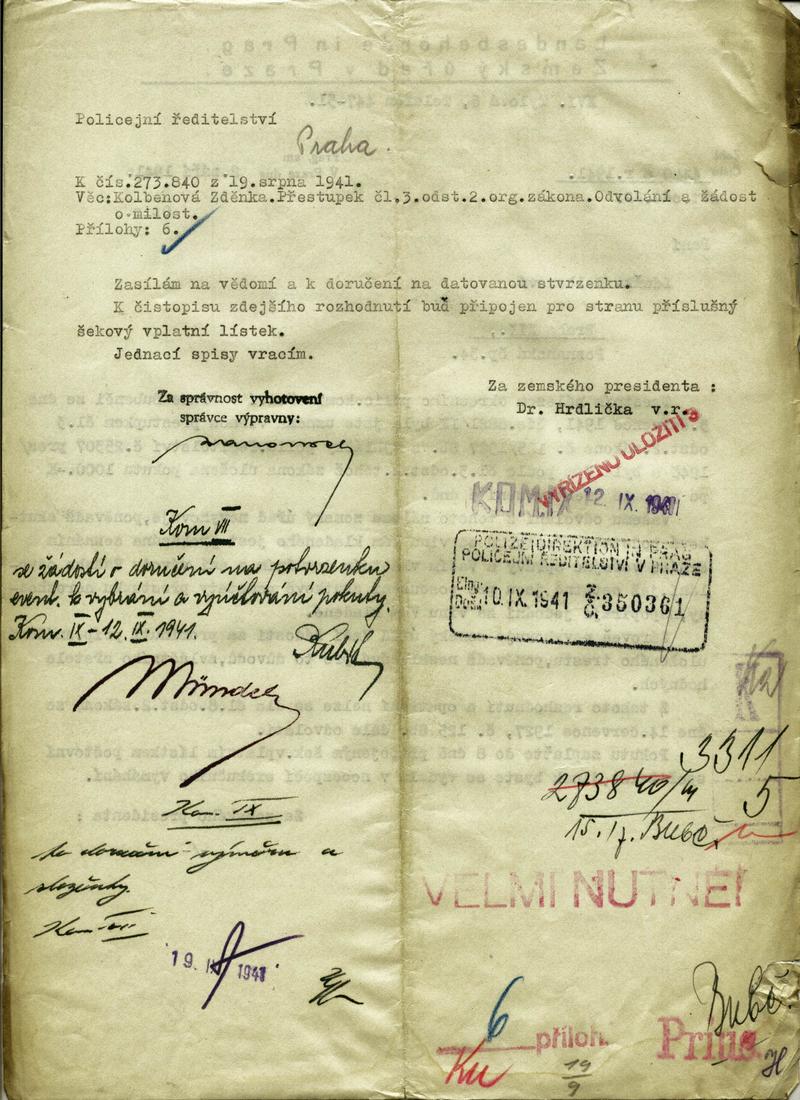 Policejní ředitelství
Praha.
K čís.273.840 z 19.srpna 1941.
Věc:Kolbenová Zděnka.Přestupek čl.3.odst.2.org.zákona.Odvolání a žádost
o milost.
Přílohy: 6.
Zasílám na vědomí a k doručení na datovanou stvrzenku.
K čistopisu zdejšího rozhodnutí buď připojen pro stranu příslušný
šekový vplatní lístek.
Jednací spisy vracím.
Za zemského presidenta :
Dr. Hrdlička v.r.
Za správnost vyhotovení
správce výpravny:
VYŘÍZENO ULOŽITI
KOM IX 12 IX. 1941
Kom VII
se žádostí o doručení na potvrzenku
event. k vybrání a vyúčtování pokuty.
Kom. IX - 12. IX. 1941.
POLIZEIDIREKTION IN PRAG
POLICEJNÍ ŘEDITELSTVÍ V PRAZE
10. IX. 1941 350361
3311
273840/41
5
15. 17. Bubč.
Kom. IX
VELMI NUTNÉ!
Kom VII
19. 1941
6 příloh.
Ku
19
9
Prius.
Bubč.